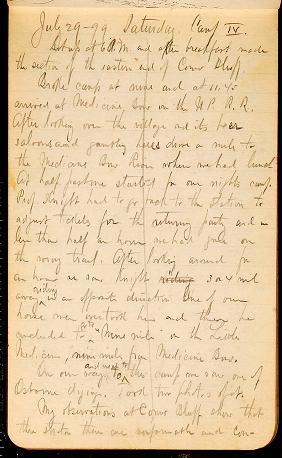 July 29-99 Saturday. Camp IV.
Got up at 6 A.M and after breakfast made
the section of the eastern end of Como Bluff.
Broke camp at nine and at 11.45
arrived at Medicine Bow on the U.P.R.R.
After looking over the village and its beer
saloons and gambling hells drove a mile to
the Medicine Bow River where we had lunch
At half past one started for our nights camp.
Prof. Knight had to go back to the station to
adjust tickets for the returning party and in
less than half an hour we had gone on
the wrong trail. After looking around for
an hour we saw Knight 3 or 4 mil
away riding in an opposite direction One of our
horse men overtook him and then he
concluded to go to "Nine mile" on the Little
Medicine, nine miles from Medicine Bow.
On our way and next to this camp we saw one of
Osborne diggings. Took two photos of it.
My observations at Como Bluff show that
the strata there are conformable and con-